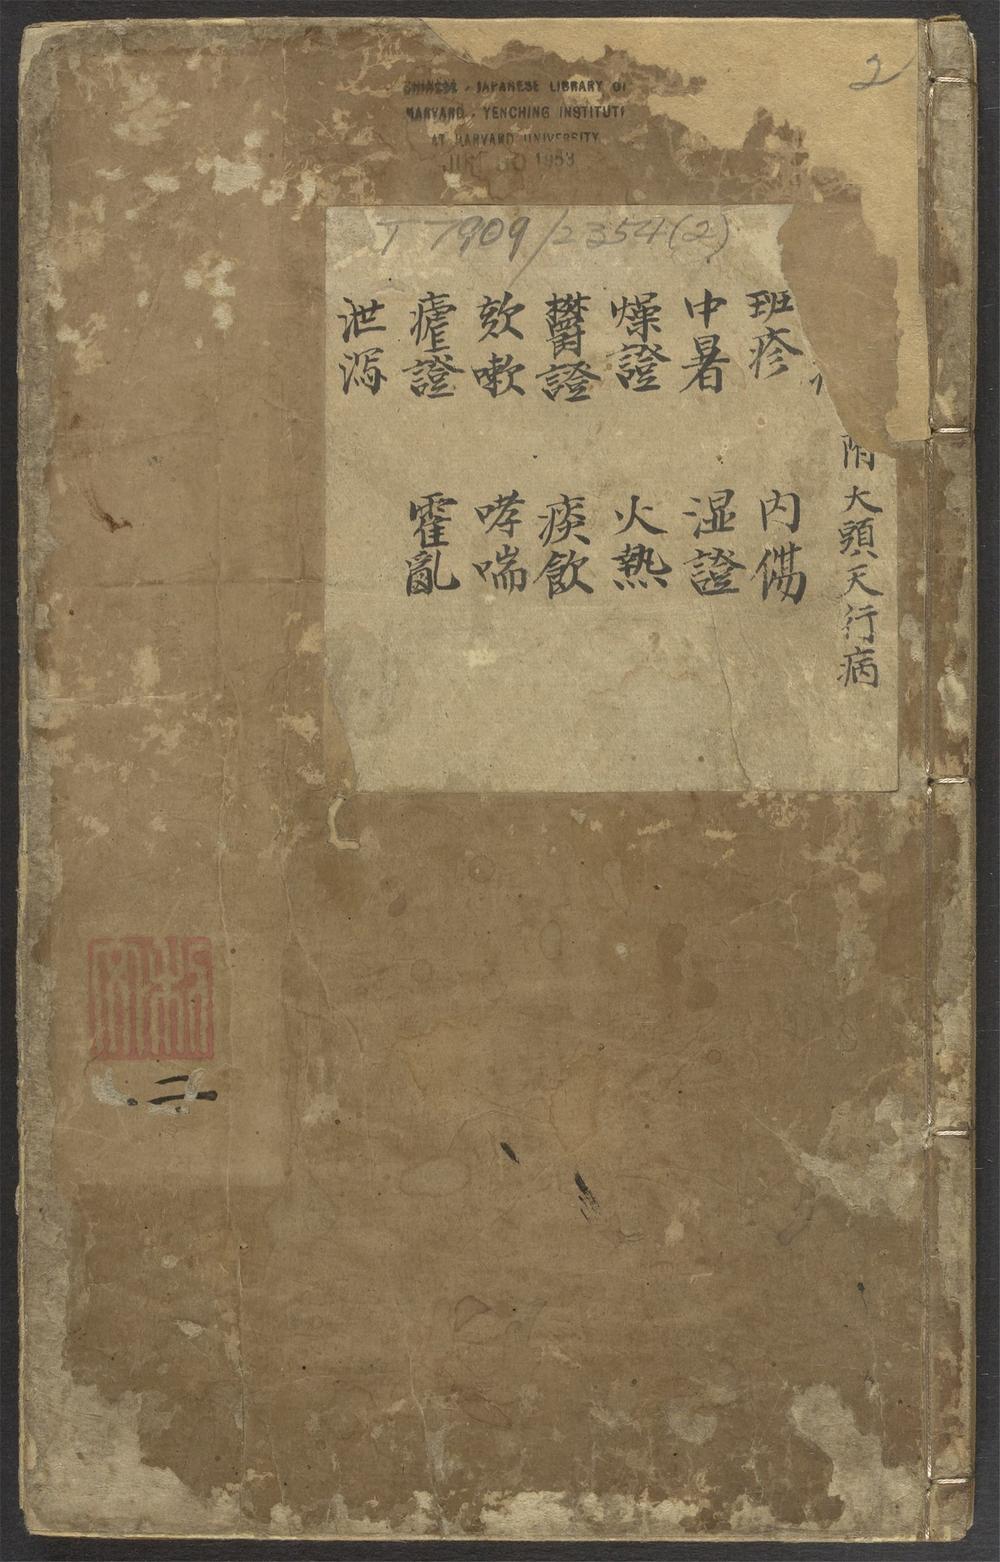 2
CHINESE - JAPANESE LIBRARY OF
HARVARD - YENCHING INSTITUTE
AT HARVARD UNIVERSITY
1953
T 7909/2354(2)
附大頭天行病
班疹 内傷
中暑 湿證
燥證 火熱
欝證 痰飲
欬嗽 哮喘
瘧證 霍亂
泄瀉
二